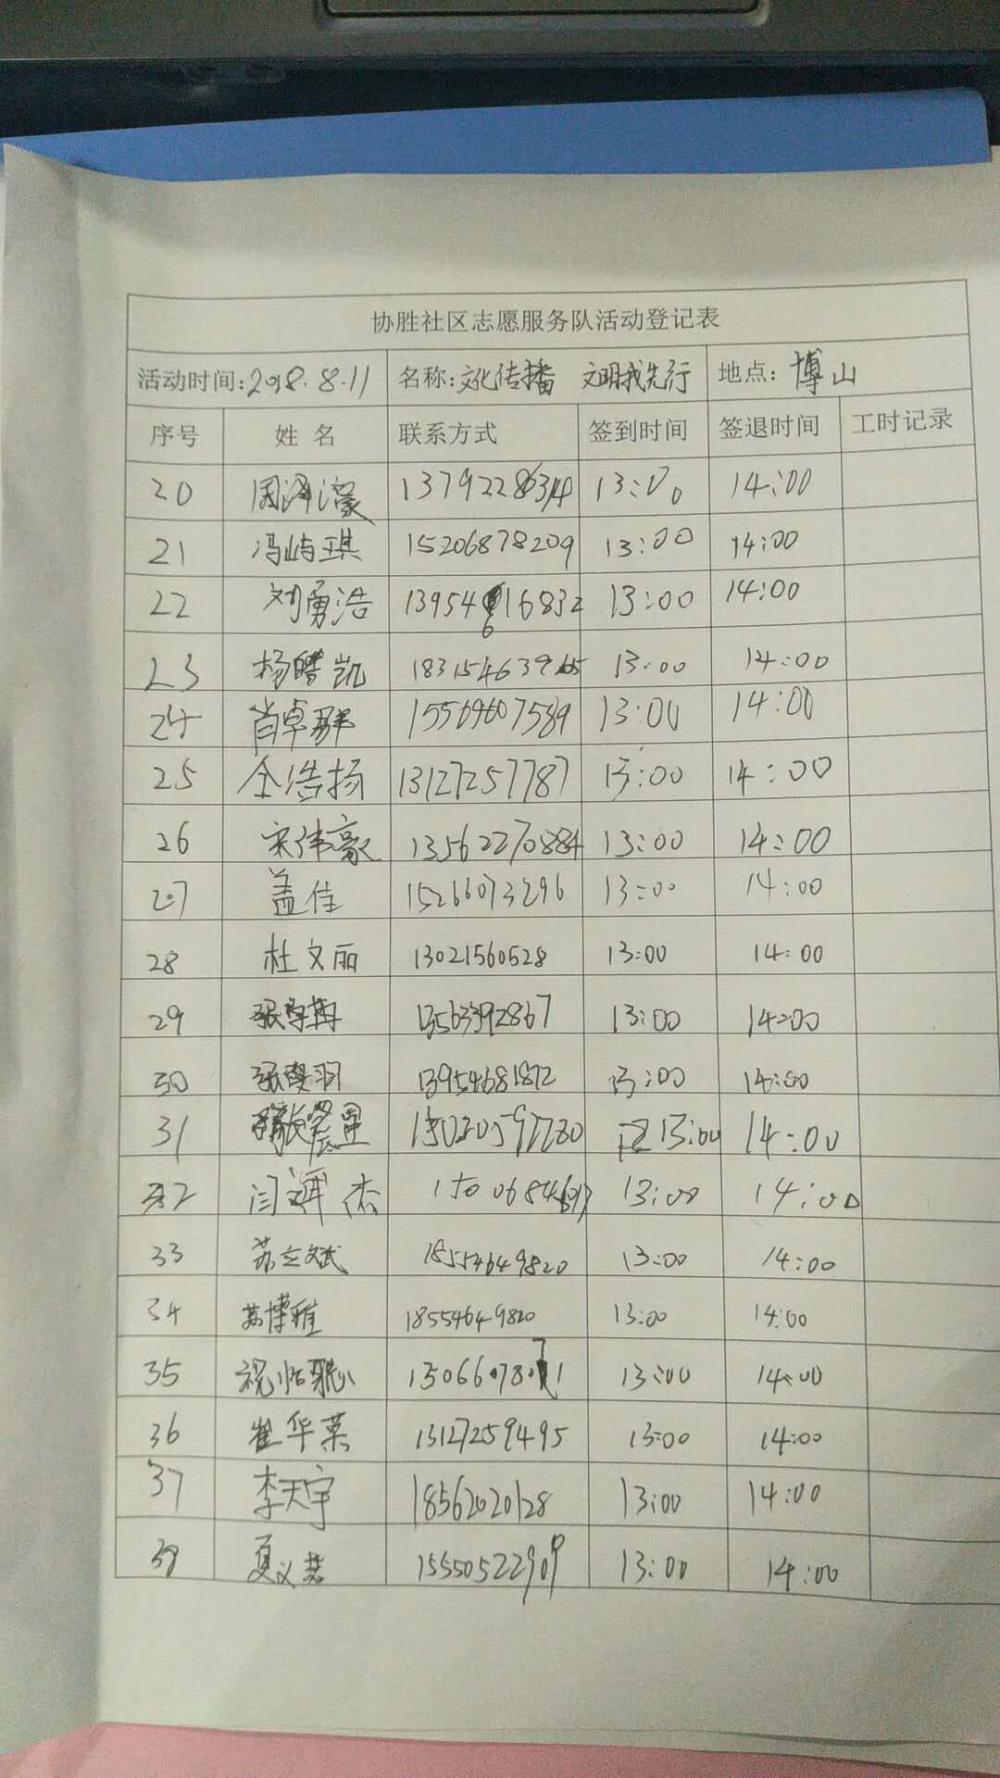 协胜社区志愿服务队活动登记表
活动时间:2018.8.11 名称:文化传播 文明我先行 地点:博山
序号 姓名 联系方式 签到时间 签退时间 工时记录
20 周泽濛 13:00 14:00
21 冯屿琪 15206878209 13:00 14:00
22 刘勇浩 13954616832 13:00 14:00
23 杨曙凯 13:00 14:00
24 肖卓群 15569607589 13:00 14:00
25 仝浩扬 13127257787 13:00 14:00
26 宋伟豪 13562270884 13:00 14:00
27 盖佳 15266073296 13:00 14:00
28 杜文丽 13021560528 13:00 14:00
29 13563392867 13:00 14:00
30 13954681872 13:00 14:00
31 13:00 14:00
32 闫 杰 13:00 14:00
33 苏立斌 18554649820 13:00 14:00
34 苏博雅 18554649820 13:00 14:00
35 祝 13:00 14:00
36 崔华英 13127259495 13:00 14:00
37 李天宇 18562020128 13:00 14:00
38 夏义慧 15550522909 13:00 14:00